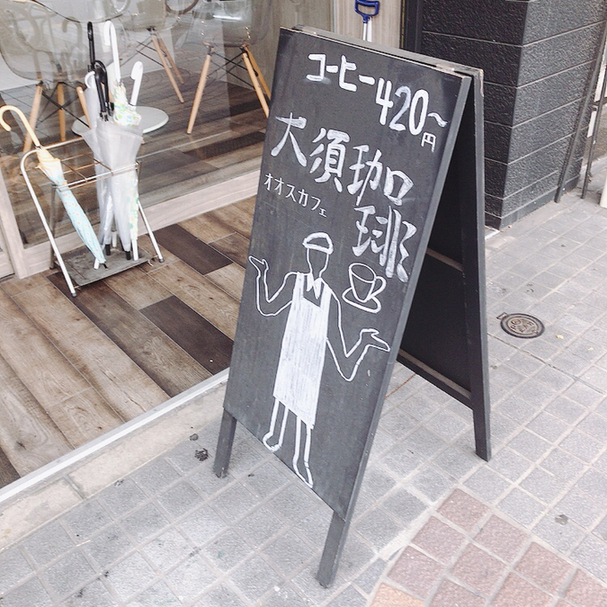 コーヒー420円〜
大須珈琲
オオスカフェ